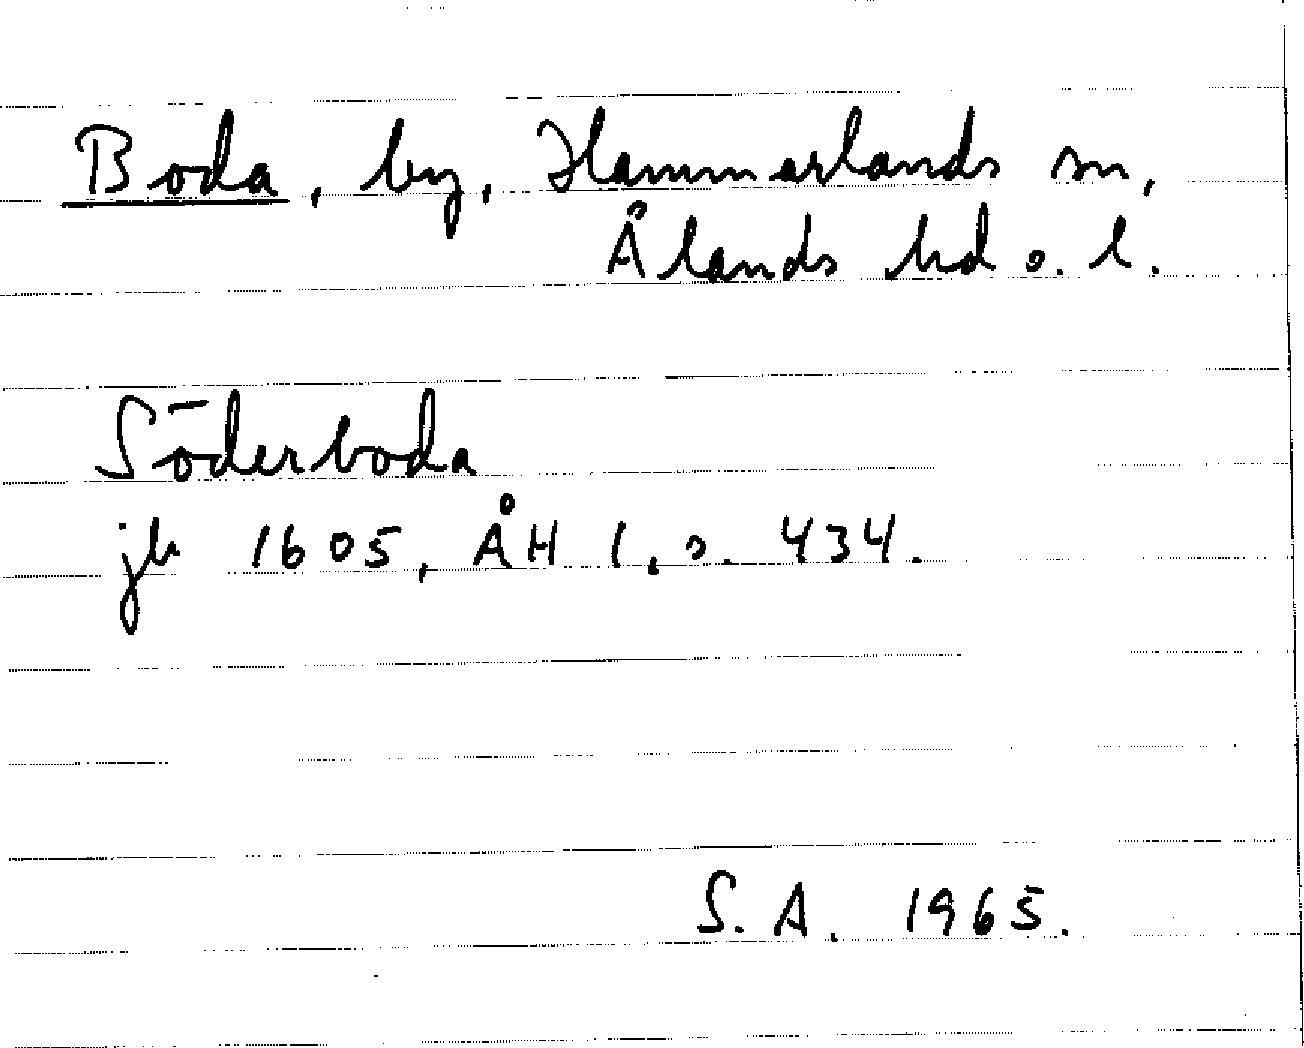 Boda, by, Hammarlands sn,
Ålands hd o. l.
Söderboda
jb 1605, ÅH 1, s. 434.
S. A. 1965.